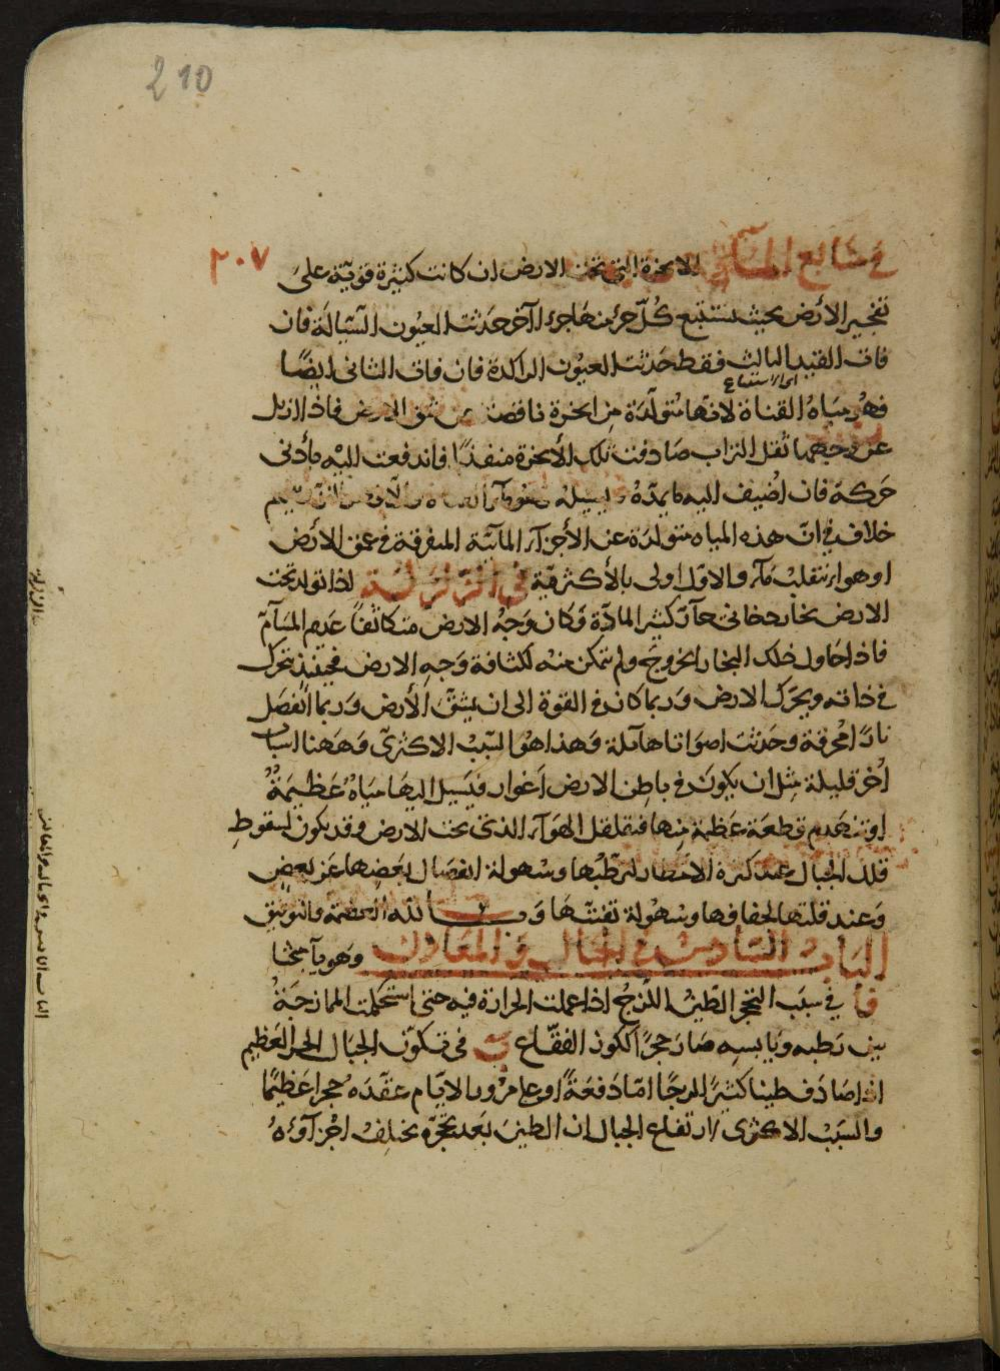 210
٢٠٧
في منابع المآء الابخرة التي تحت الارض ان كانت كثيرة قويّة على
تفجير الأرض بحيث يستتبع كُلّ جزء منها جزءا آخر حدثت العيون السّيالة فان
فات القيد الثالث فقط حدثت العيون الراكدة فان فات الثاني ايضًا
اى الاستتباع
فهُو مياهُ القناة لانها متولّدة من ابخرة ناقصة عن شق الارض فاذا ازيل
عن وجهها ثقل التراب صادفت تلك الأبخرة منفذًا فاندفعت اليه بأدنى
حركة فان اضيف اليه ما يمدّهُ
خلاف في انّ هذه المياه متولدة عن الأجزآء المآئيّة المتفرقة في عمق الأرض
او هواء ينقلب مآء والاوّل اولى بالأكثرقيّة في الزلزلة اذا تولد تحت
الارض بخار دخاني حآرّ كثير المادّة وكان وجهُ الارض متكاثفًا عديم المسآمّ
فاذا حاول ذلك البخار الخروج ولم يتمكن منه لكثافة وجه الارض فحينئذ يتحرك
في ذاته ويحرّك الارض وربما كان في القوة الى ان يشقّ الأرض وربما انفصل
نارًا محرقة وحدثت اصواتا هآئلة وهذا هو السّبب الاكثريّ وههنا اسباب
اخر قليلة مثل ان يكون في باطن الارض اغوار فيسيل اليها مياهٌ عظيمةٌ
او تنهدم قطعة عظيمة منها فيقلقل الهوآء الذي تحت الارض وقد يكون لسقوط
قلل الجبال عند كثرة الامطار لترطّبها وسهولة انفصال بعضها عن بعض
وعند قلتها لجفافها وسهولة تفتتها وبالله العصمة والتوفيق
الباب السّادس في الجبال والمعادن وهو مباحث
في سبب التحجر الطّين اللزجُ اذا عملت الحرارة فيه حتى استحكمت الممازجة
بين رطبه ويابسه صار حجرًا ككوز الفقّاع ب في تكوّن الجبال الحرّ العظيم
اذا صادف طينا كثيرًا لزجًا امّا دفعةً او على مرور الايّام عقّدهُ حجرا عظيمًا
والسّبب الاكثرى لارتفاع الجبال ان الطين بعد تحجّره تختلف اجزآؤهُ